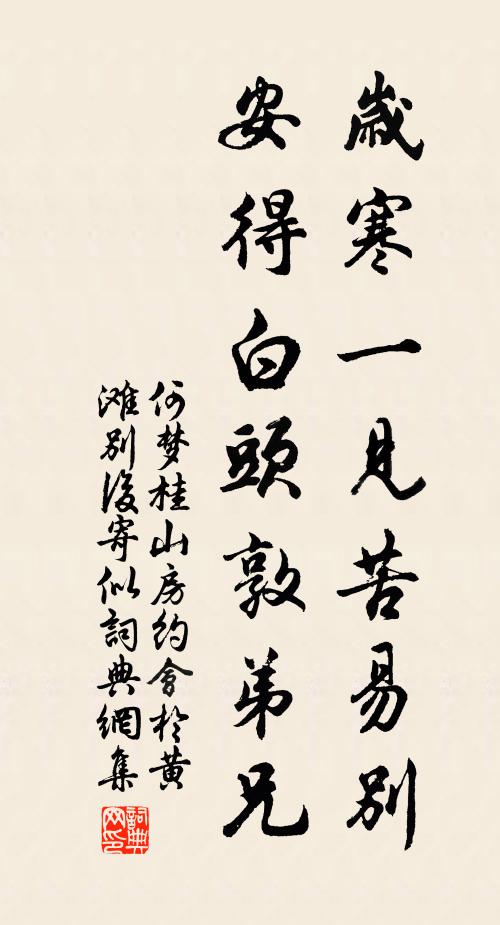 歲寒一見苦易別
安得白頭敦弟兄
何梦桂山房约會於黄
滩别後寄似詞典網集
詞典
网印